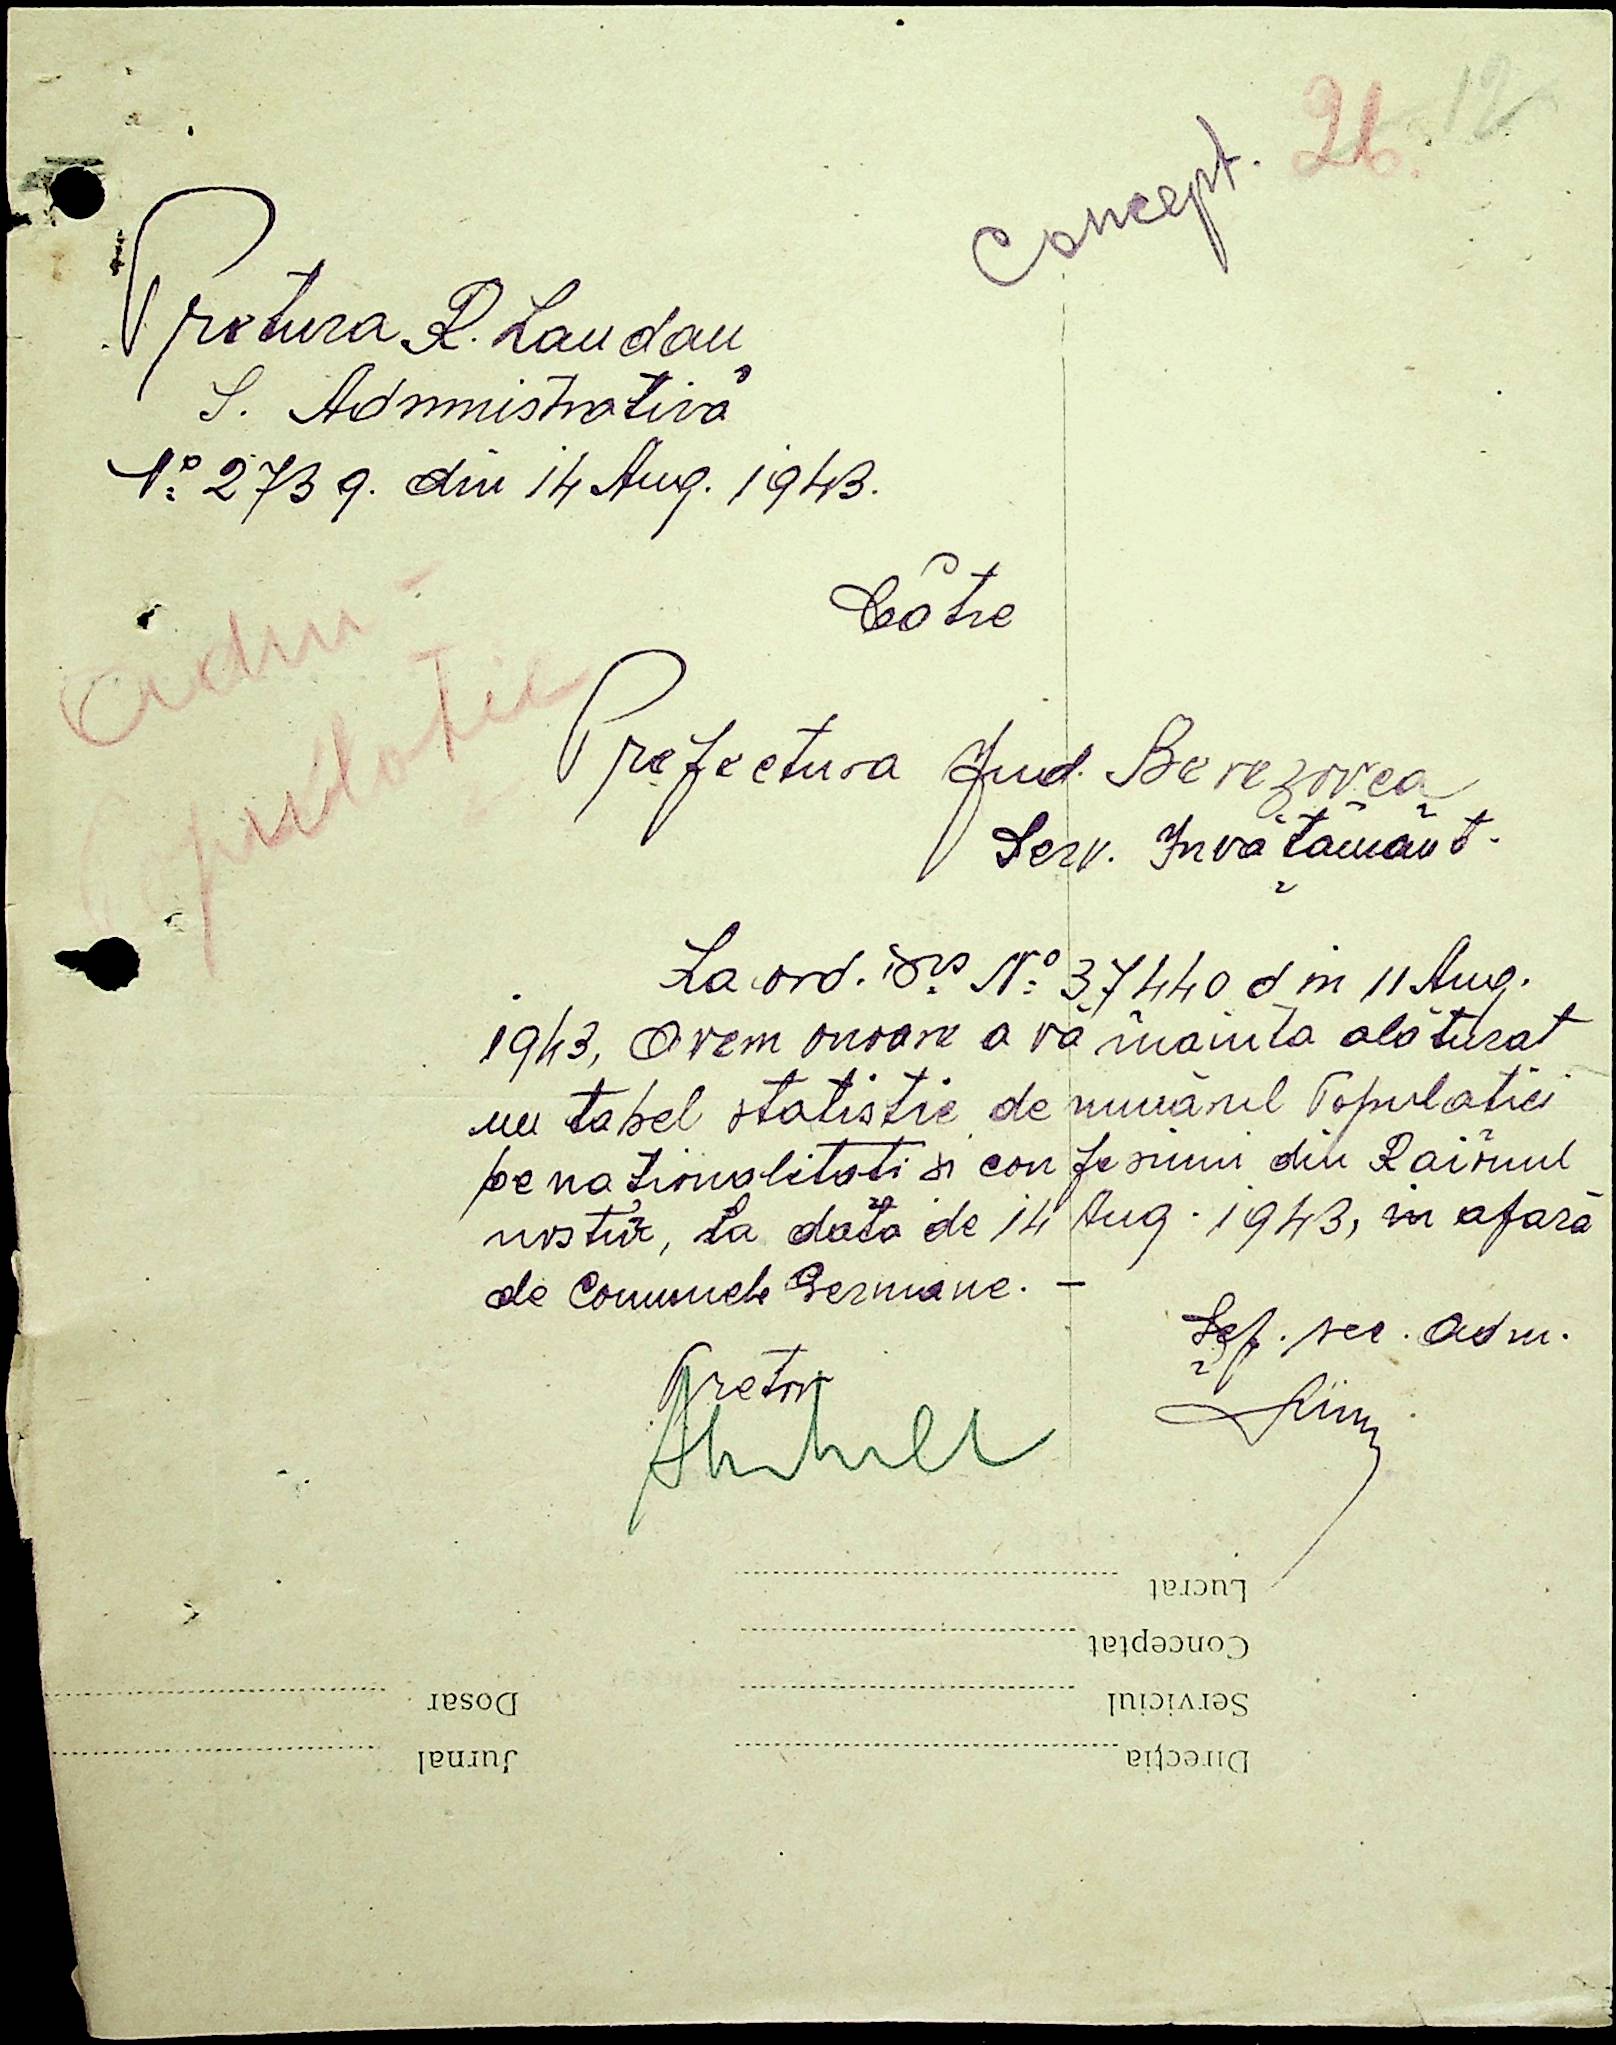 26. 12
Concept.
Pretura R. Landau
S. Administrativă
No. 2739. din 14 Aug. 1943.
Către
Adm
populatie
Prefectura Jud. Berezovca
Serv. Învăţământ.
La ord. dvs No. 37440 din 11 Aug.
1943, Avem onoare a vă înainta alăturat
un tabel statistic de numărul Populatiei
pe naţionalitati si confesiuni din Raionul
nostru, la data de 14 Aug. 1943, in afară
de Comunele Germane. —
Şef. sec. adm.
Pretor
Lucrat
Conceptat
Serviciul
Dosar
Direcţia
Jurnal